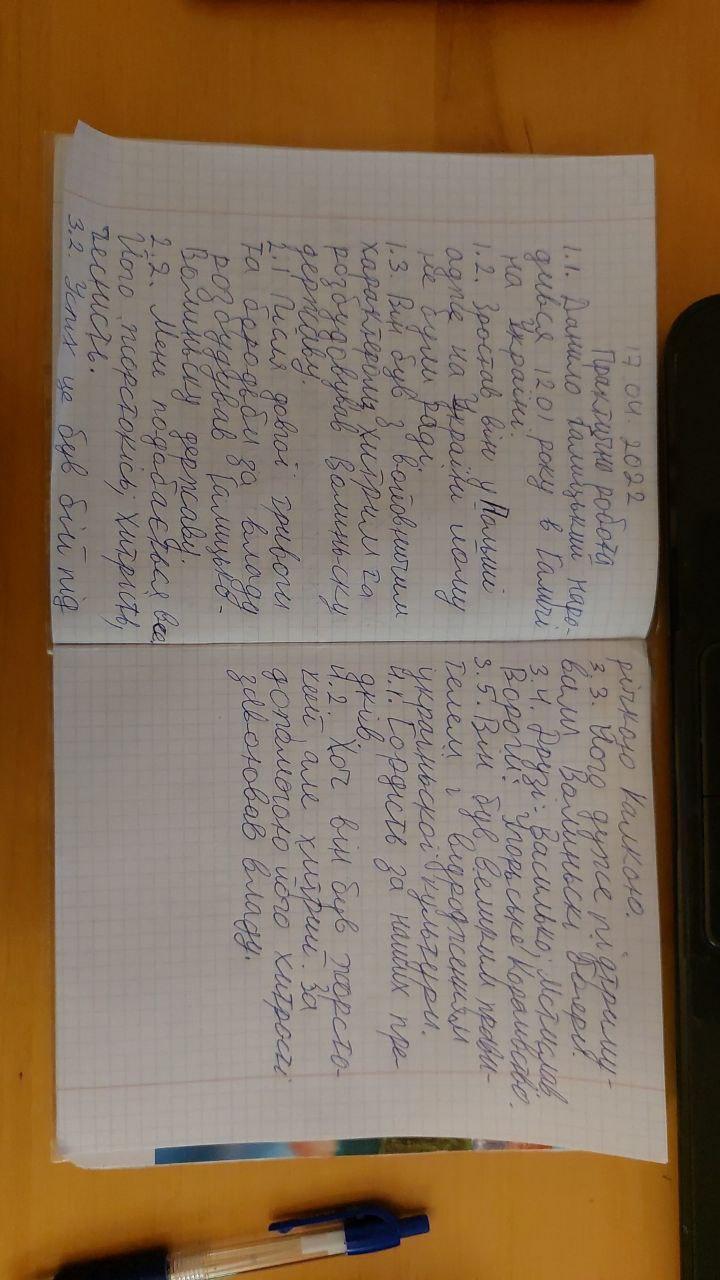 17.04.2022
Практична робота
1.1. Данило Галицький наро-
дився 1201 року в Галичі
на Україні.
1.2. Зростав він у Польші
адже на Україні йому
не були раді.
1.3. Він був з войовнитим
характером, хитрим та
розбудовував Волиньску
державу.
2.1 Після довгої тривоги
та боротьби за владу
розбудував Галицько-
Волиньску державу.
2.2. Мені подобається все,
Його жорстокість, хитрість,
чесність.
3.2 Успіх це був бій під
річкою Калкою.
3.3. Його дуже підтриму-
вали Волиньскі бояри.
3.4. Друзі- Василько, Мстислав.
Вороги: Угорське Королівство.
3.5. Він був великим прави-
телем і відродженням
української культури.
4.1. Гордість за наших пре
дків.
4.2 Хоч він був жорсто-
кий але хитрий. За
допомогою його хитрості
завоював владу.